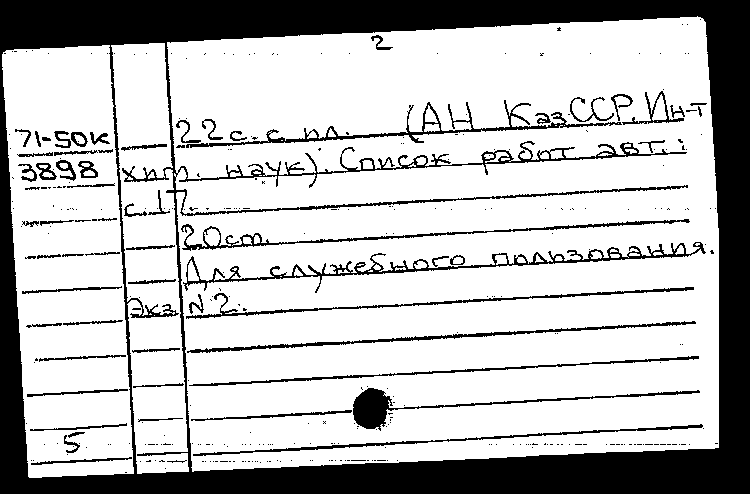 2
71-50к 22 с. с ил. (АН КазССР. Ин-т
3898 хим. наук). Список работ авт.:
с. 17.
20 ст.
Для служебного пользования.
Экз. N 2.
5